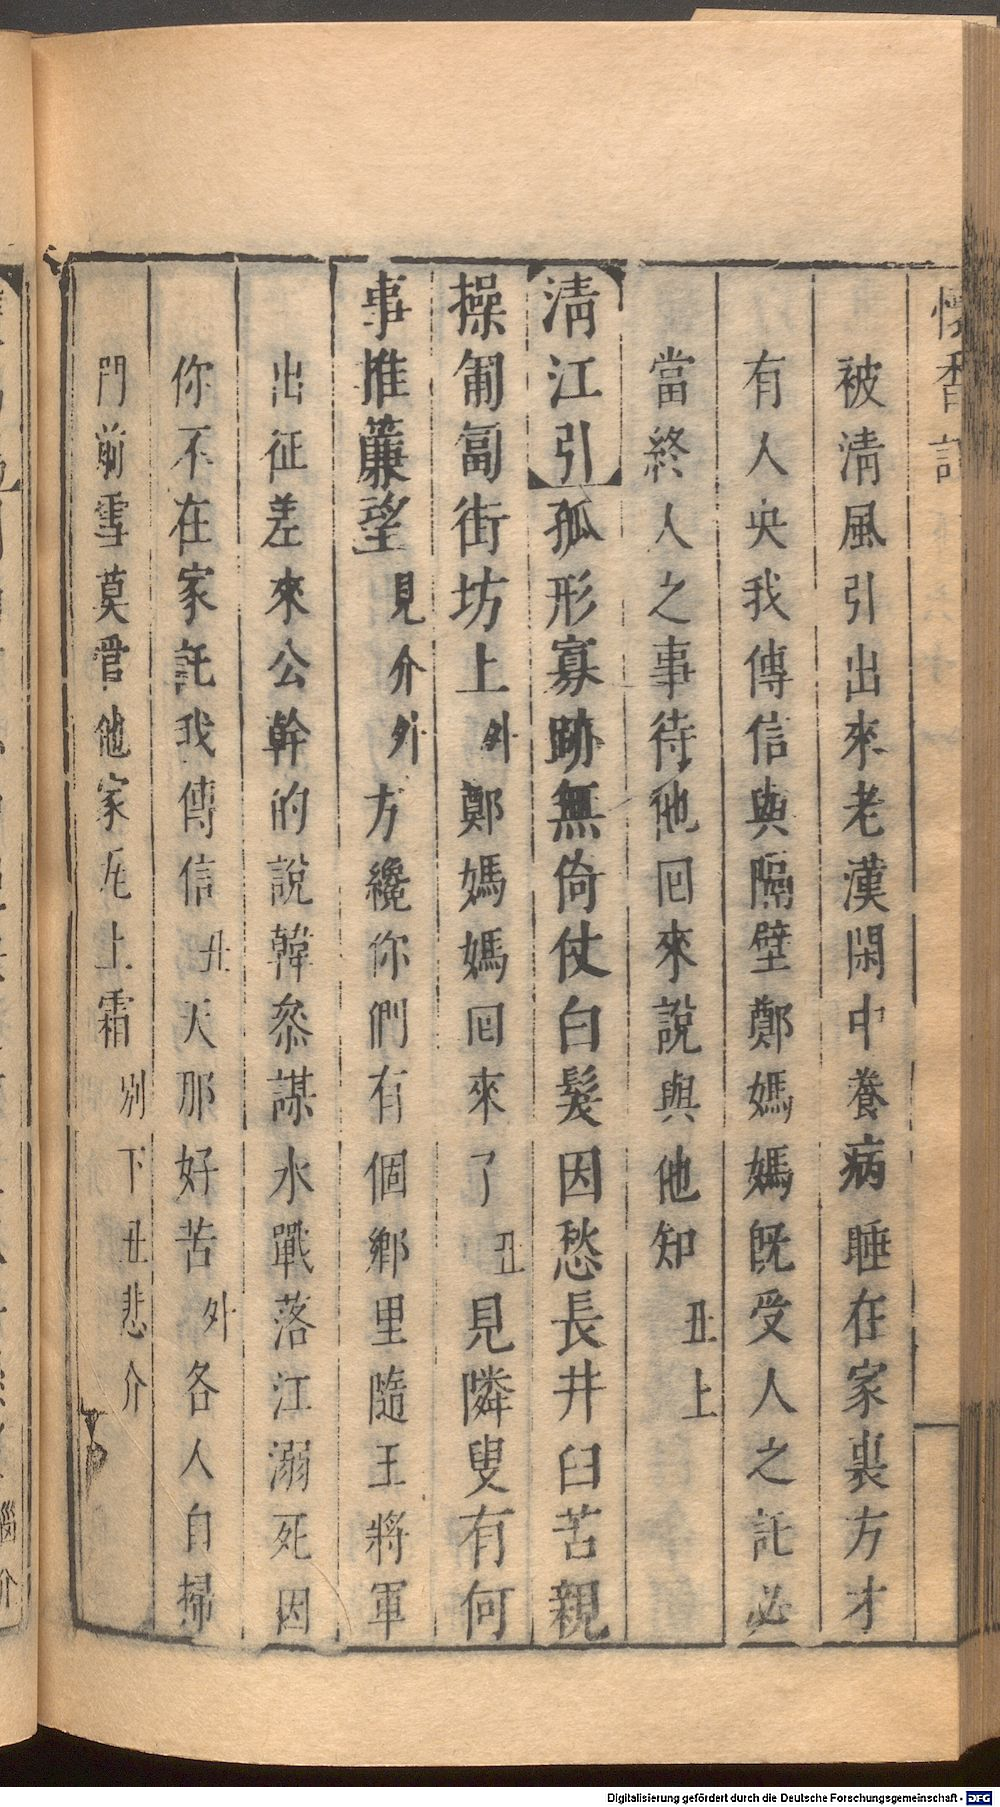 懷香記
被清風引出來老漢閑中養病睡在家裏方才
有人央我傳信與隔壁鄭媽媽旣受人之託必
當終人之事待他回來說與他知丑上
【清江引】孤形寡跡無倚仗白髮因愁長井臼苦親
操匍匐街坊上外鄭媽媽回來了丑見隣叟有何
事推簾望見介外方纔你們有個鄉里隨王將軍
出征差來公幹的說韓叅謀水戰落江溺死因
你不在家託我傳信丑天那好苦外各人自掃
門前雪莫管他家瓦上霜別下丑悲介
惱介
Digitalisierung gefördert durch die Deutsche Forschungsgemeinschaft - DFG